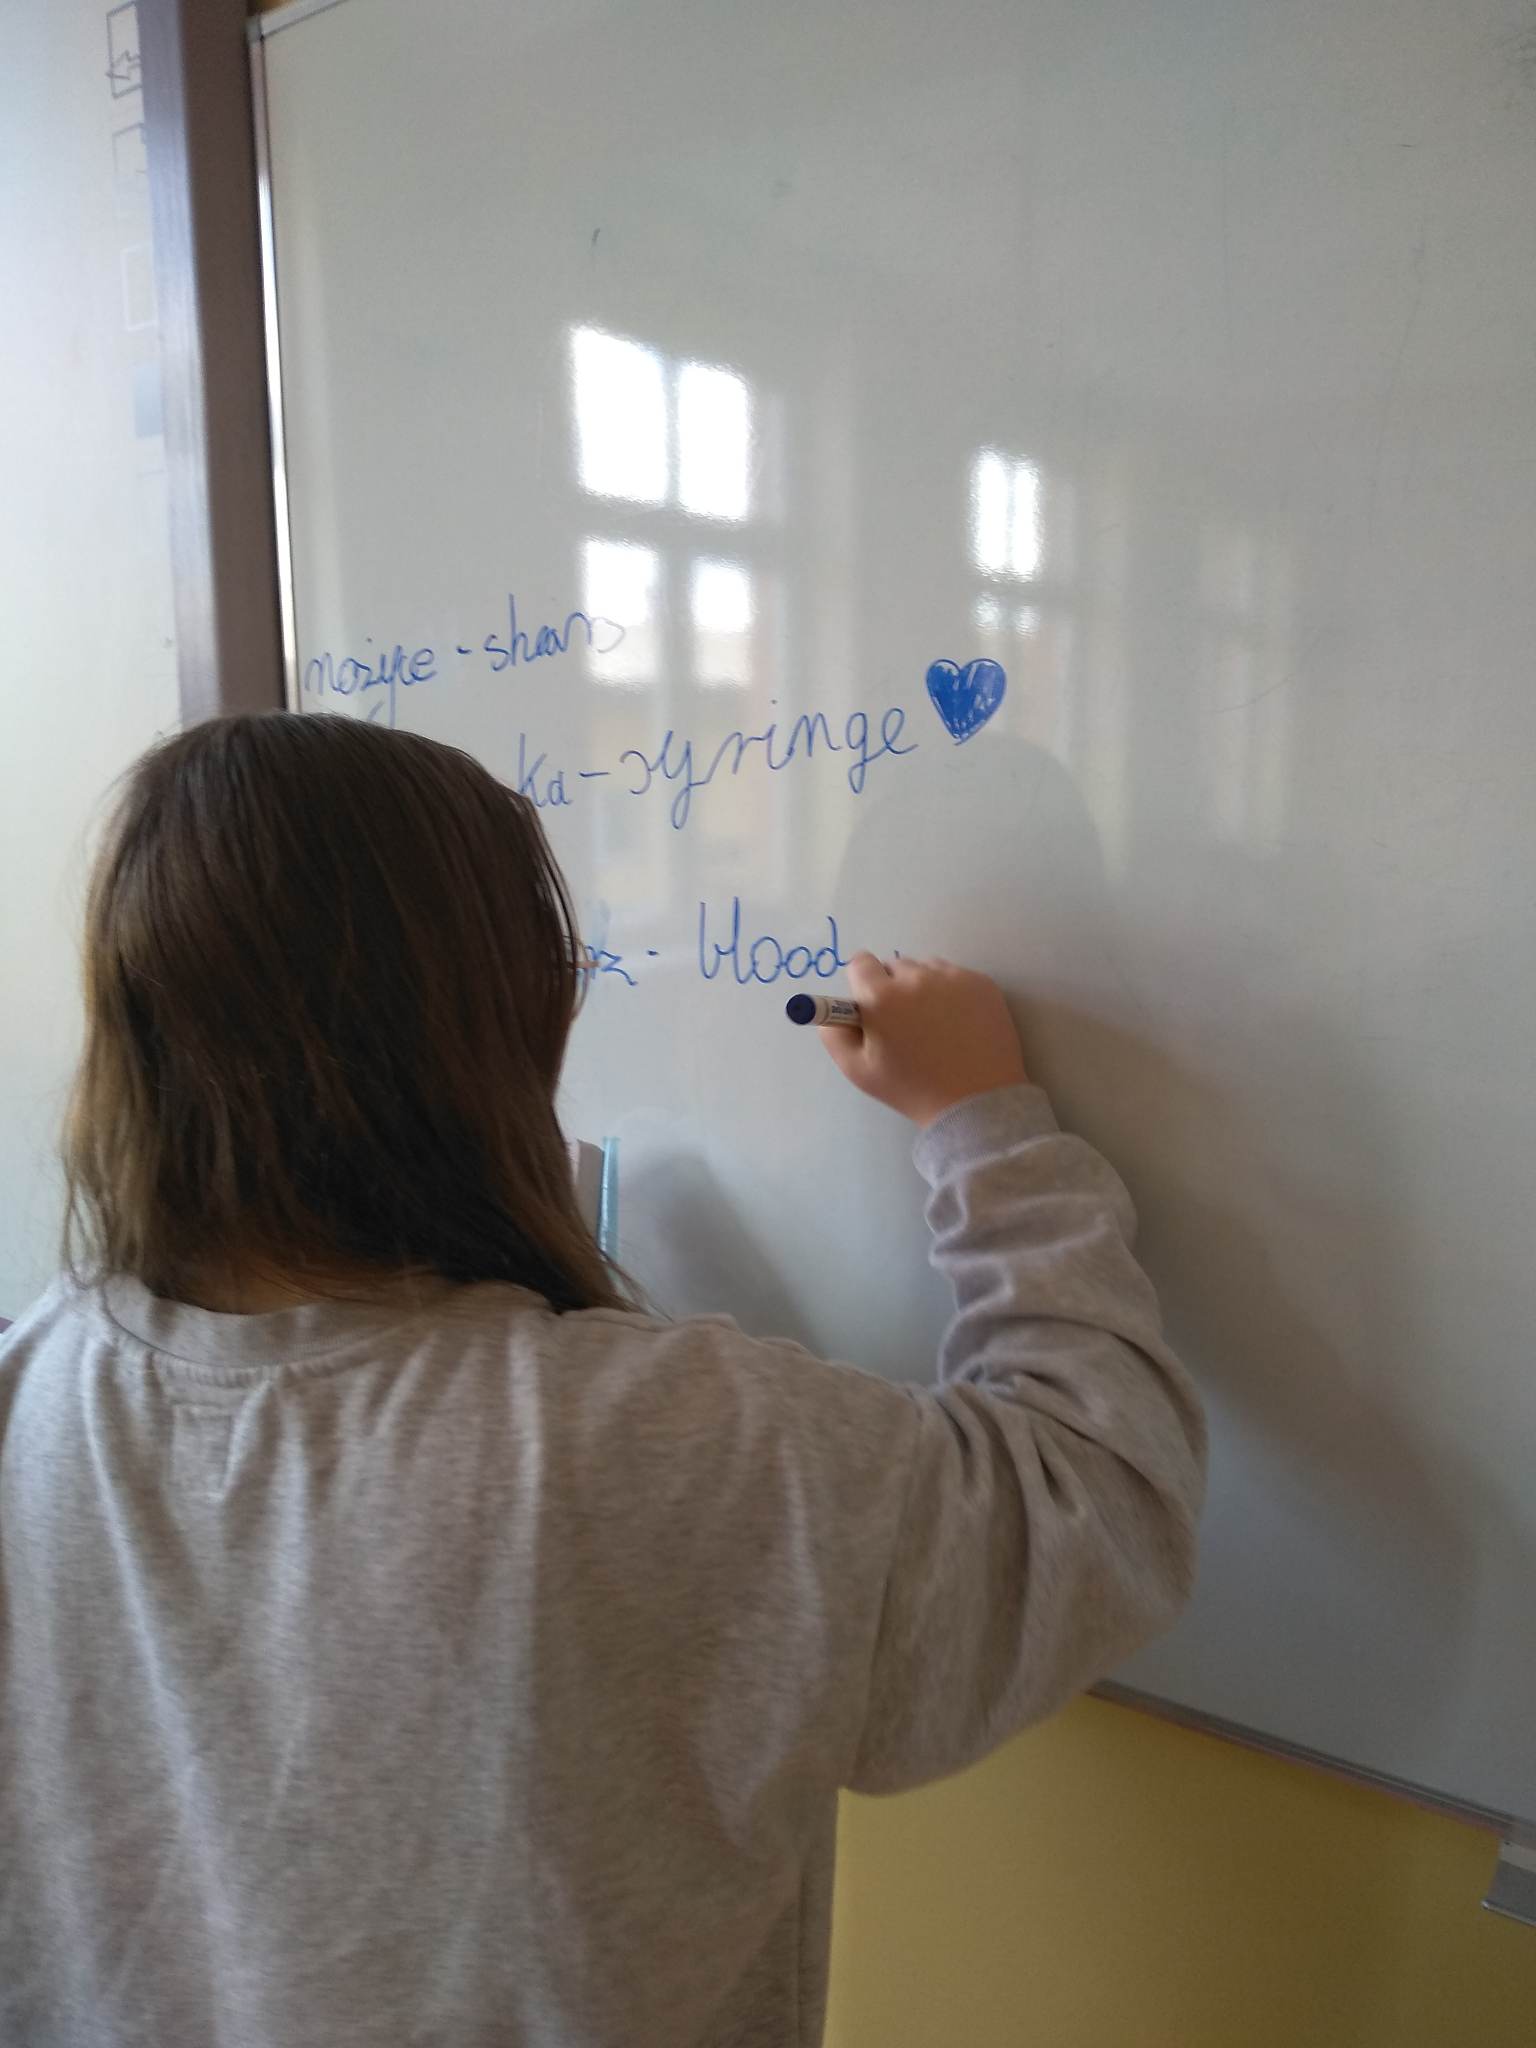 nożyce - shears
ka - syringe
blood